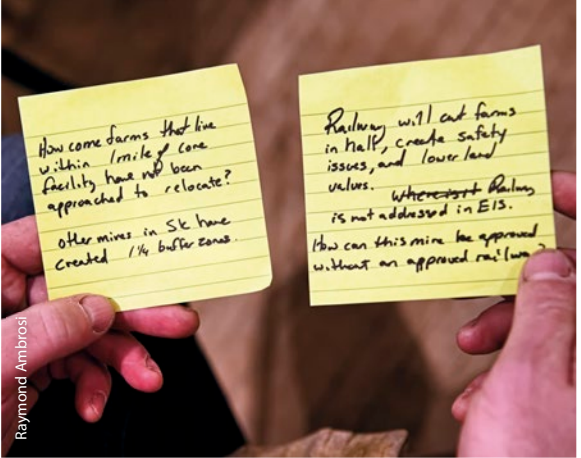 How come farms that live
within 1 mile of core
facility have not been
approached to relocate?
other mines in SK have
created 1 1/4 buffer zones.
Railway will cut farms
in half, create safety
issues, and lower land
values. Where is it Railway
is not addressed in EIS.
How can this mine be approved
without an approved railway?
Raymond Ambrosi